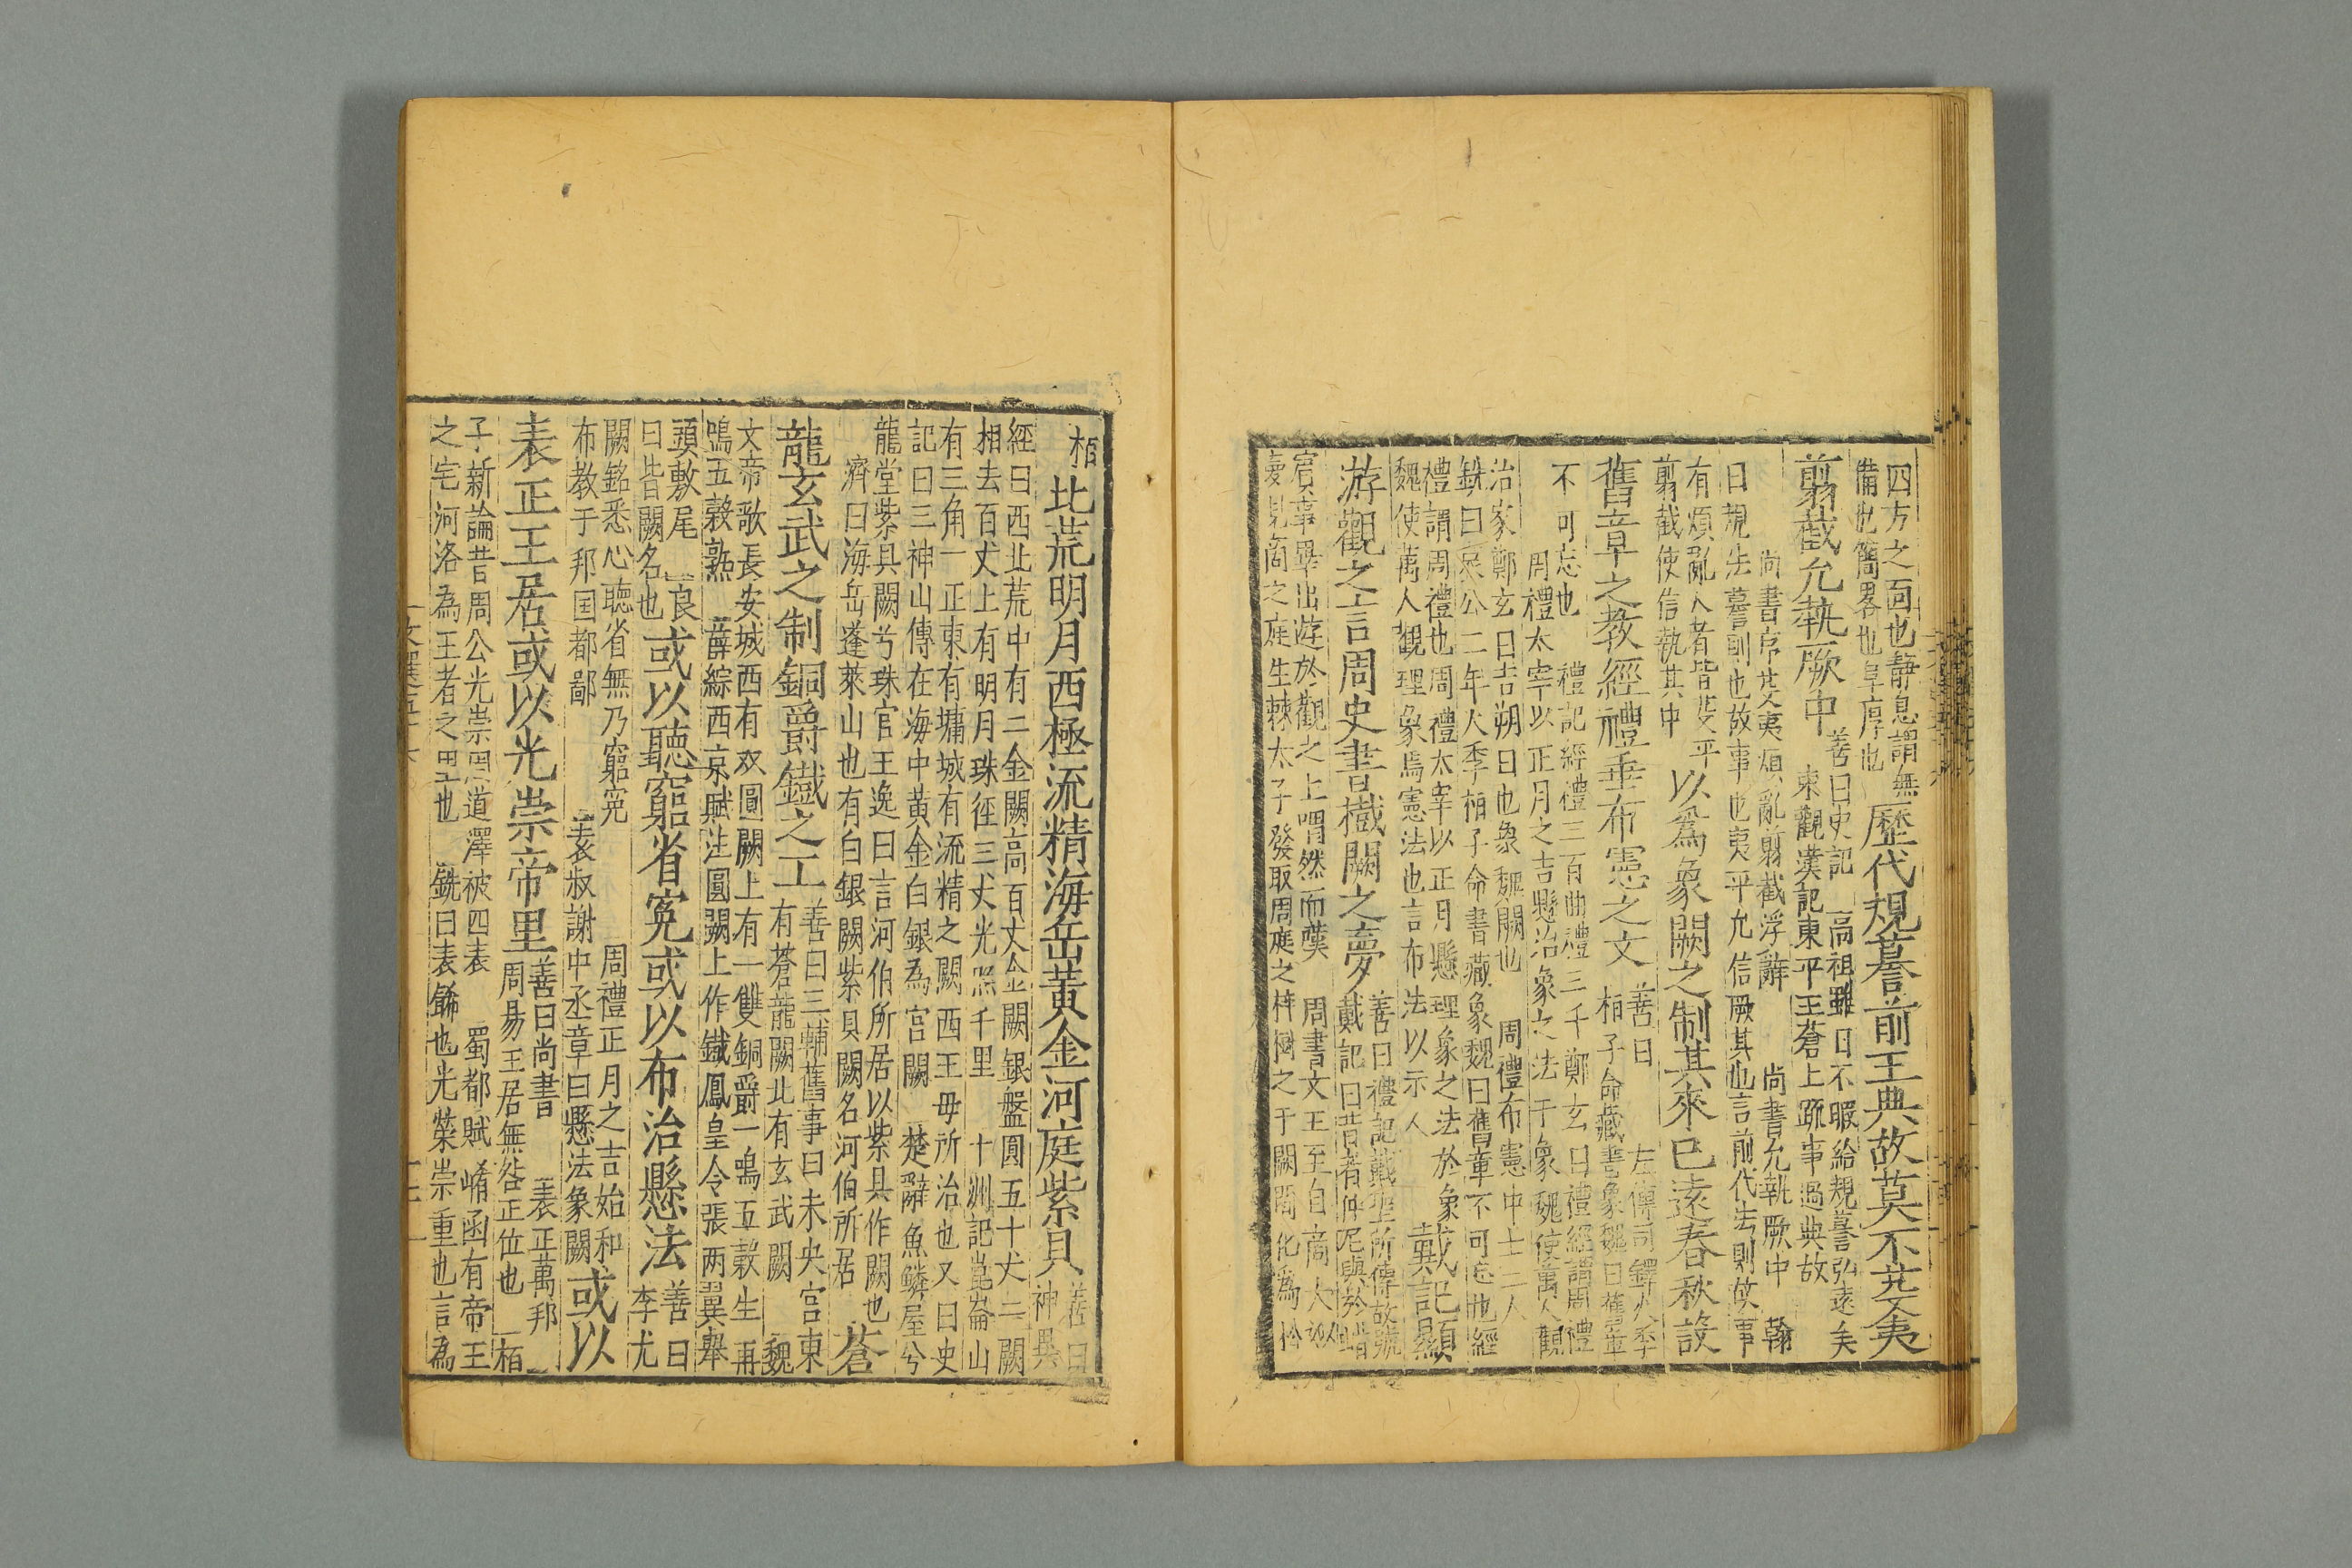 四方之百也靜息謂無
備也簡畧也阜厚也
歷代規謩前王典故莫不芟夷
翦截允執厥中
善曰史記 高祖雖日不暇給規謩弘遠矣
東觀漢記東平王蒼上疏事過典故
尚書序芟夷煩亂翦截浮辭 尚書允執厥中 翰
曰規法謩訓也故事也夷平允信厥其也言前代法則故事
有煩亂人者皆芟平
翦截使信執其中
以爲象闕之制其來已遠春秋設
舊章之教經禮垂布憲之文
善曰 左傳司鐸火季
栢子命藏書象魏曰舊章
不可忘也 禮記經禮三百曲禮三千鄭玄曰禮經謂周禮
周禮太宰以正月之吉懸治象之法于象魏使萬人觀
治象鄭玄曰吉朔日也象魏闕也 周禮布憲中士二人
銑曰哀公二年火季栢子命書藏象魏曰舊章不可忘也經
禮謂周禮也周禮太宰以正月懸理象之法於象
魏使萬人觀理象焉憲法也言布法以示人
戴記顯
游觀之言周史書樹闕之夢
善曰禮記戴聖所傳故號
戴記曰昔者仲尼與於蜡
賓事畢出遊於觀之上喟然而嘆 周書文王至自商太姒
夢見商之庭生棘太子發取周庭之梓樹之于闕間化爲松
栢
北荒明月西極流精海岳黃金河庭紫貝
善曰
神異
經曰西北荒中有二金闕高百丈金闕銀盤圓五十丈二闕
相去百丈上有明月珠徑三丈光照千里 十洲記崑崙山
有三角一正東有墉城有流精之闕西王毋所治也又曰史
記曰三神山傳在海中黃金白銀為宮闕 楚辭魚鱗屋兮
龍堂紫貝闕兮珠宮王逸曰言河伯所居以紫貝作闕也
濟曰海岳蓬萊山也有白銀闕紫貝闕名河伯所居
蒼
龍玄武之制銅爵鐵之工
善曰三輔舊事曰未央宮東
有蒼龍闕北有玄武闕 魏
文帝歌長安城西有双圓闕上有一雙銅爵一鳴五穀生再
鳴五穀熟 薛綜西京賦注圓闕上作鐵鳳皇令張兩翼舉
頭敷尾 良
曰皆闕名也
或以聽窮省冤或以布治懸法
善曰
李尤
闕銘悉心聴省無乃窮冤 周禮正月之吉始和
布教于邦国都鄙 袁叔謝中丞章曰懸法象闕
或以
表正王居或以光崇帝里
善曰尚書 表正萬邦
周昜王居無咎正位也 栢
子新論昔周公光崇周道澤被四表 蜀都賦 崤函有帝王
之宅河洛為王者之里也 銑曰表餙也光榮崇重也言為